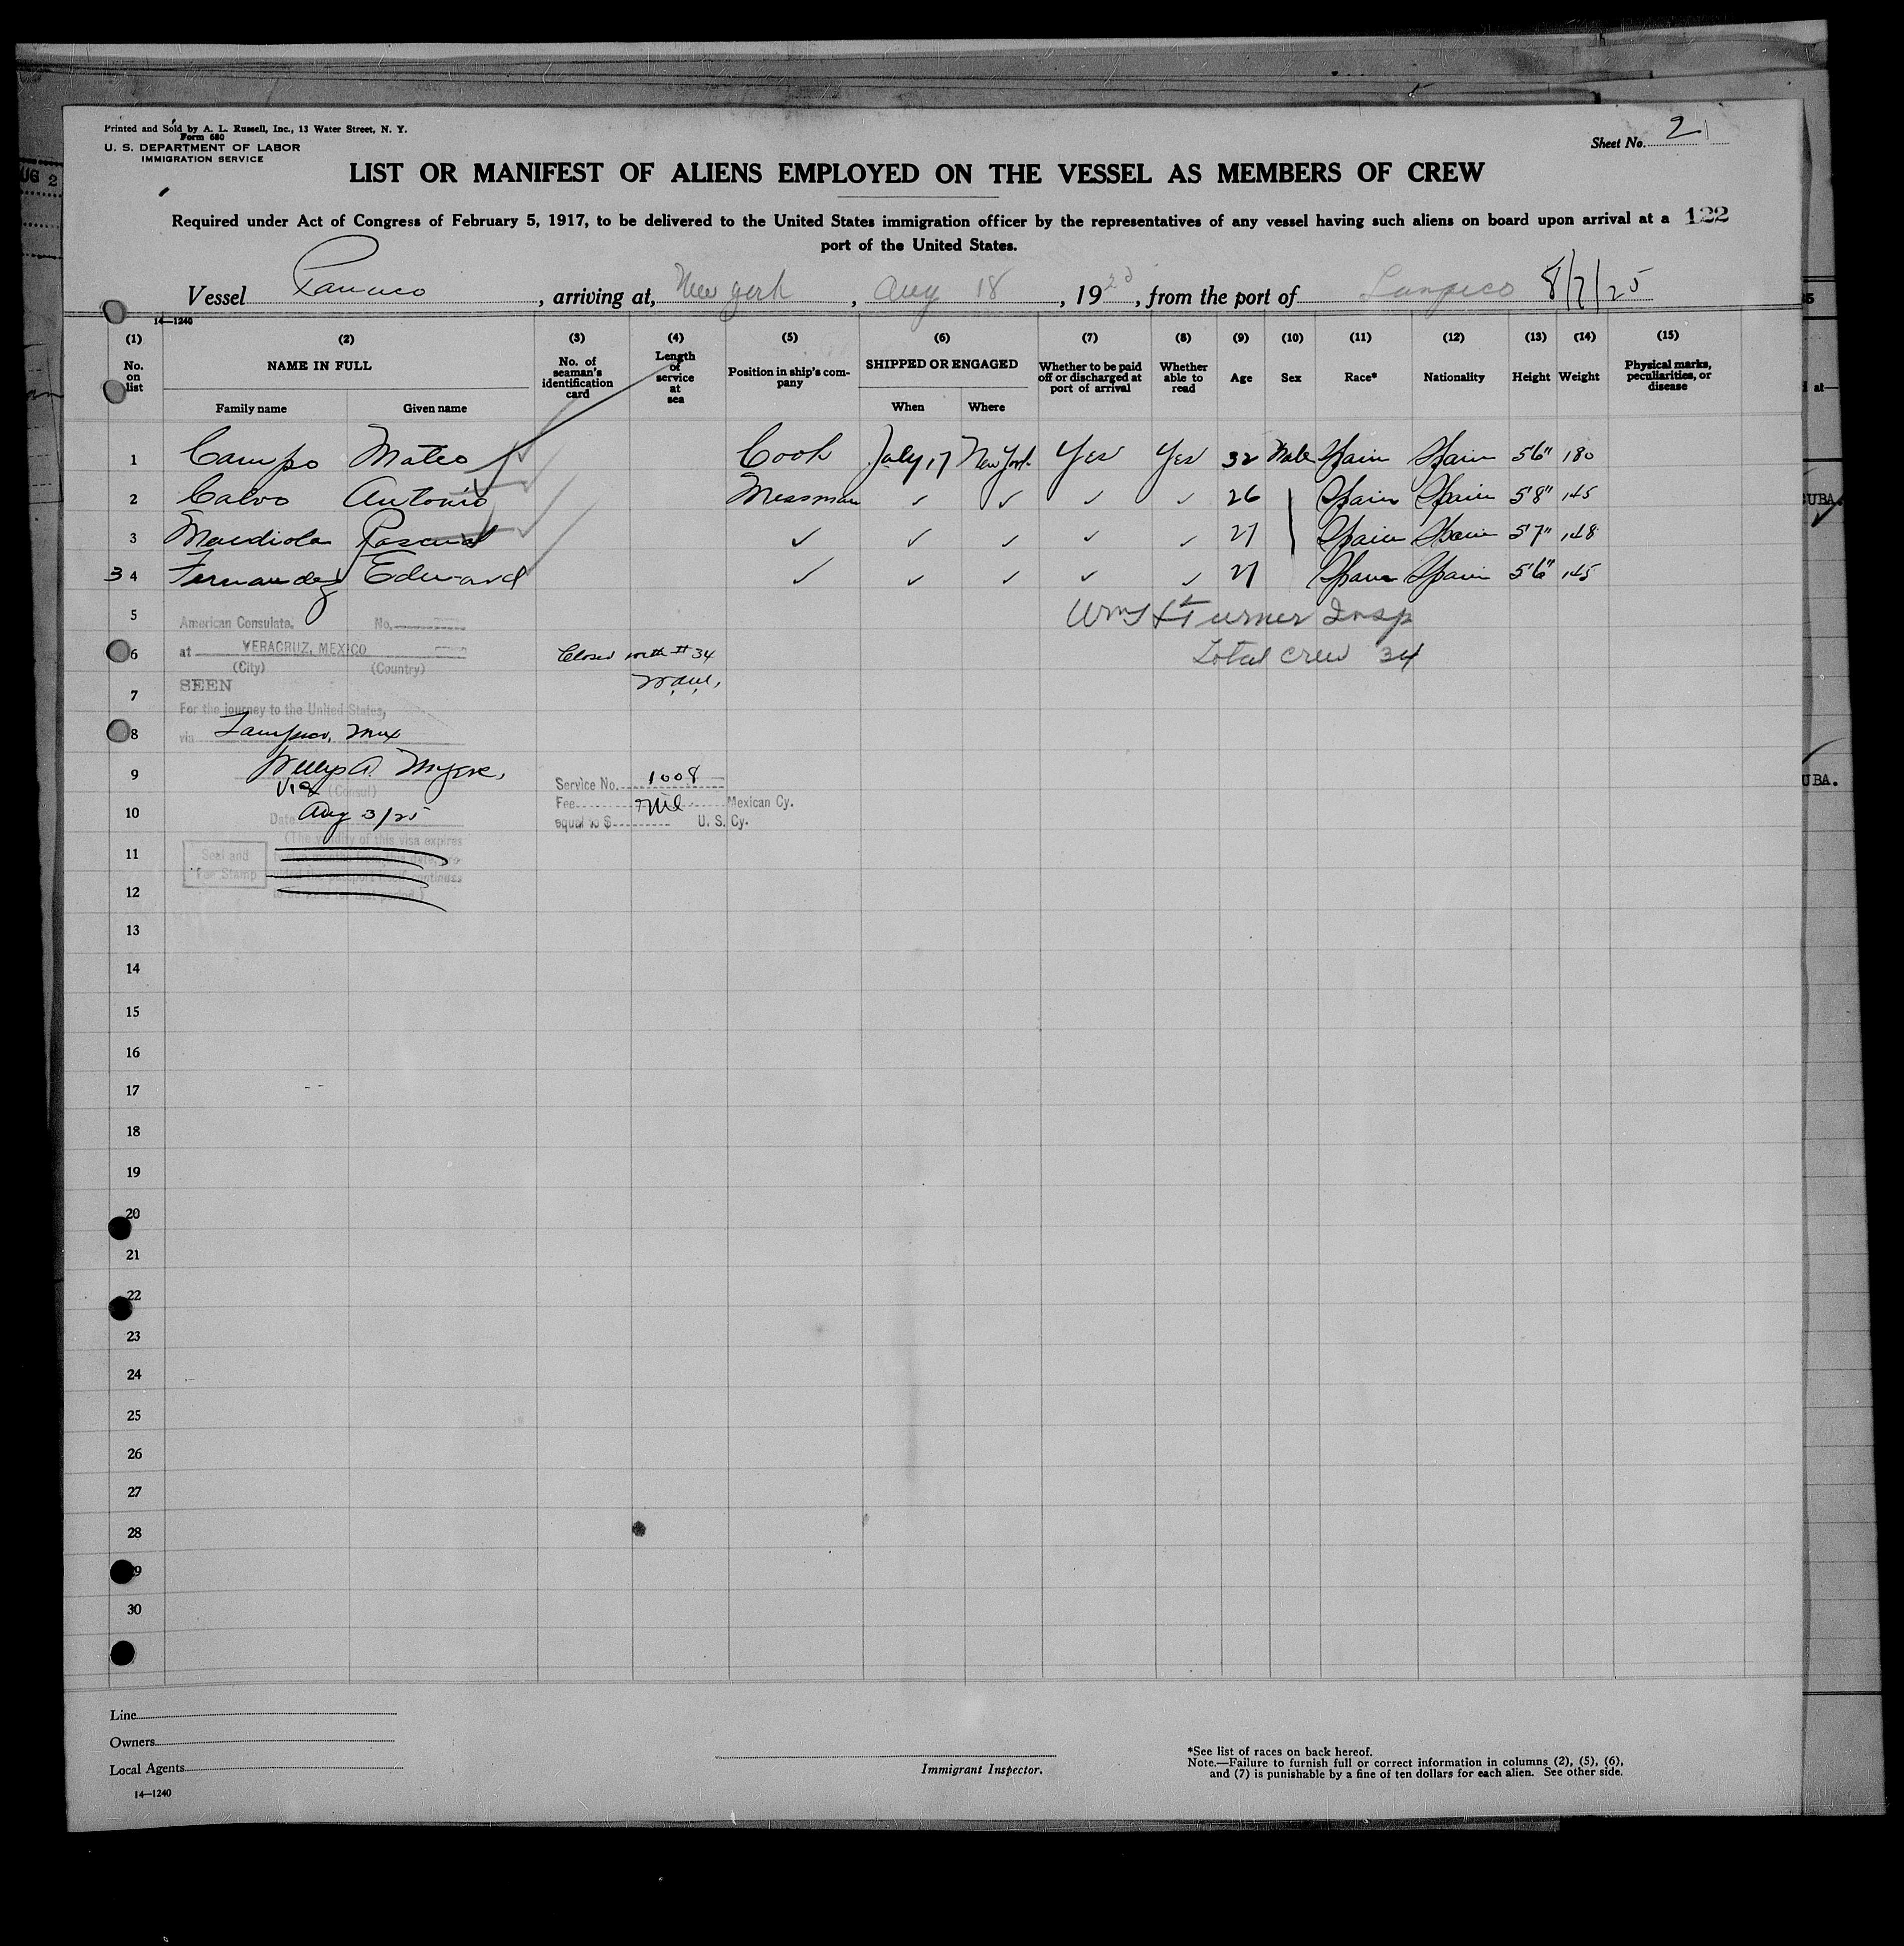 Printed and Sold by A. L. Russell, Inc., 13 Water Street, N. Y.
Form 680
U. S. DEPARTMENT OF LABOR
IMMIGRATION SERVICE
Sheet No. 2
LIST OR MANIFEST OF ALIENS EMPLOYED ON THE VESSEL AS MEMBERS OF CREW
Required under Act of Congress of February 5, 1917, to be delivered to the United States immigration officer by the representatives of any vessel having such aliens on board upon arrival at a 122
port of the United States.
Vessel Panuco, arriving at, New York, Aug 18, 1925, from the port of Tampico 8/7/25
14—1240
(1) (2) (3) (4) (5) (6) (7) (8) (9) (10) (11) (12) (13) (14) (15)
No. on list NAME IN FULL Family name Given name No. of seaman's identification card Length of service at sea Position in ship's company SHIPPED OR ENGAGED When Where Whether to be paid off or discharged at port of arrival Whether able to read Age Sex Race* Nationality Height Weight Physical marks, peculiarities, or disease
1 Campo Mateo Cook July 17 New York Yes Yes 32 Male Spain Spain 5'6" 180
2 Calvo Antonio Messman ✓ ✓ ✓ ✓ 26 Spain Spain 5'8" 145
3 Mendiola Pascual ✓ ✓ ✓ ✓ ✓ 27 Spain Spain 5'7" 148
34 Fernandez Edward ✓ ✓ ✓ ✓ ✓ 27 Spain Spain 5'6" 145
5 Turner Insp
American Consulate, No.
6 at VERACRUZ, MEXICO Closed with #34 Total crew 34
(City) (Country)
SEEN
7
For the journey to the United States,
8 via Tampico, Mex
9 Myers,
Service No. 1008
Vice (Consul)
Fee Nil Mexican Cy.
10 Date Aug 3/25
equal to $ U. S. Cy.
(The validity of this visa expires
11 twelve months from this date, pro-
Seal and
Fee Stamp vided the passport itself continues
12 to be valid for that period.)
13
14
15
16
17
18
19
20
21
22
23
24
25
26
27
28
29
30
Line
Owners
Local Agents
14—1240
Immigrant Inspector.
*See list of races on back hereof.
Note.—Failure to furnish full or correct information in columns (2), (5), (6),
and (7) is punishable by a fine of ten dollars for each alien. See other side.
UG 2
at—
UBA.
UBA.